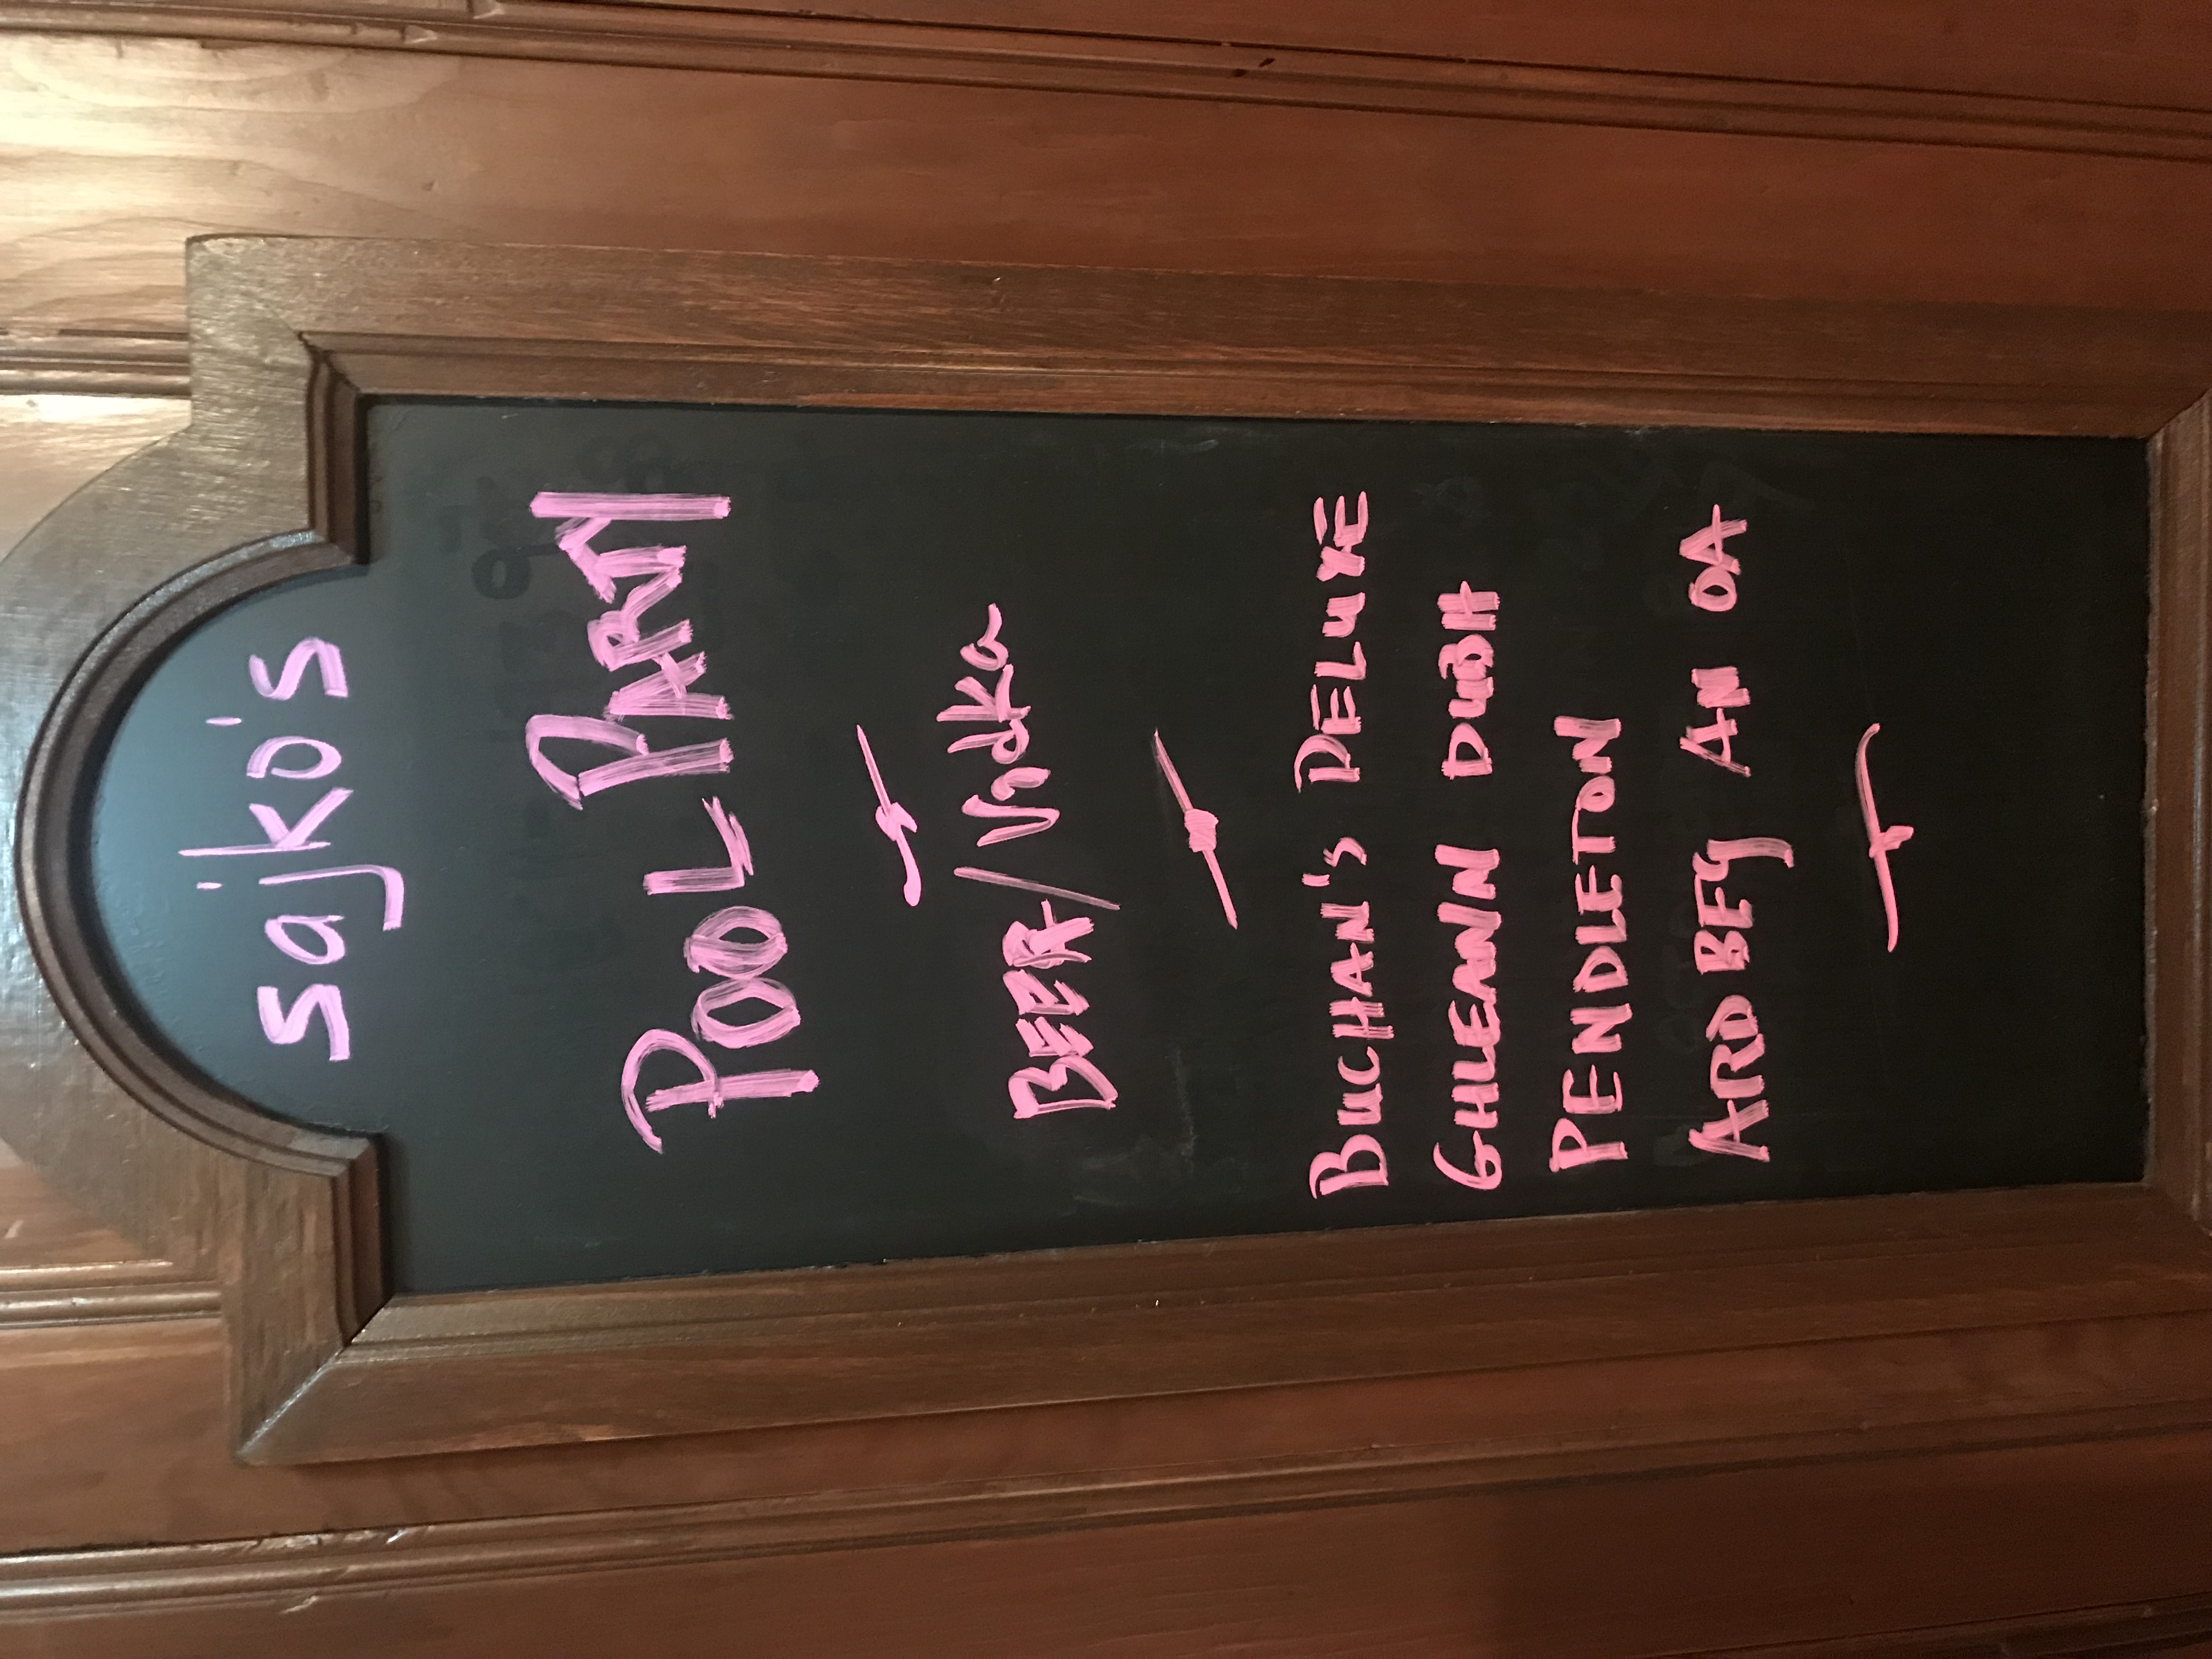 sajko's
POOL PARTY
BEER/Vodka
BUCHAN'S DELUXE
GHLEANN DUBH
PENDLETON
ARDBEG AN OA